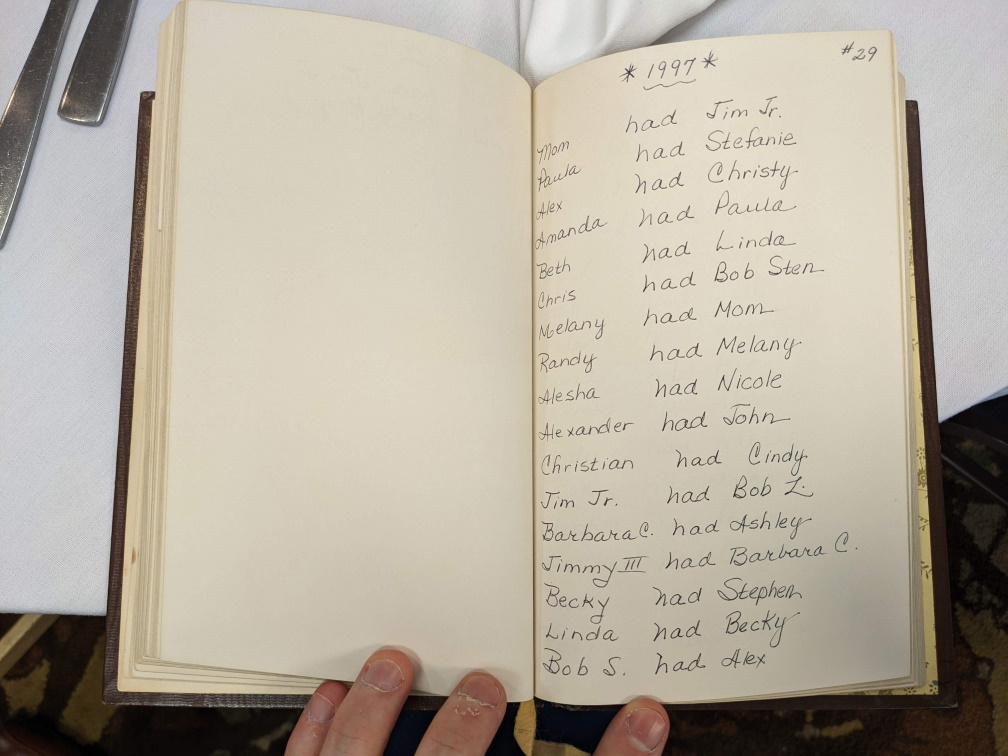 * 1997 * #29
Mom had Jim Jr.
Paula had Stefanie
Alex had Christy
Amanda had Paula
Beth had Linda
Chris had Bob Sten
Melany had Mom
Randy had Melany
Alesha had Nicole
Alexander had John
Christian had Cindy
Jim Jr. had Bob Z.
Barbara C. had Ashley
Jimmy III had Barbara C.
Becky had Stephen
Linda had Becky
Bob S. had Alex